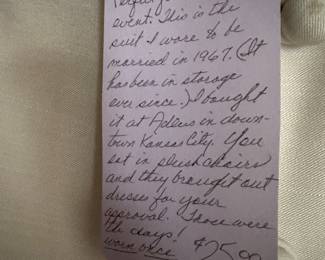 event. This is the
suit I wore to be
married in 1967. (It
has been in storage
ever since.) I bought
it at Adlers in down-
town Kansas City. You
sat in plush chairs
and they brought out
dresses for your
approval. Those were
the days!
worn once $75.00